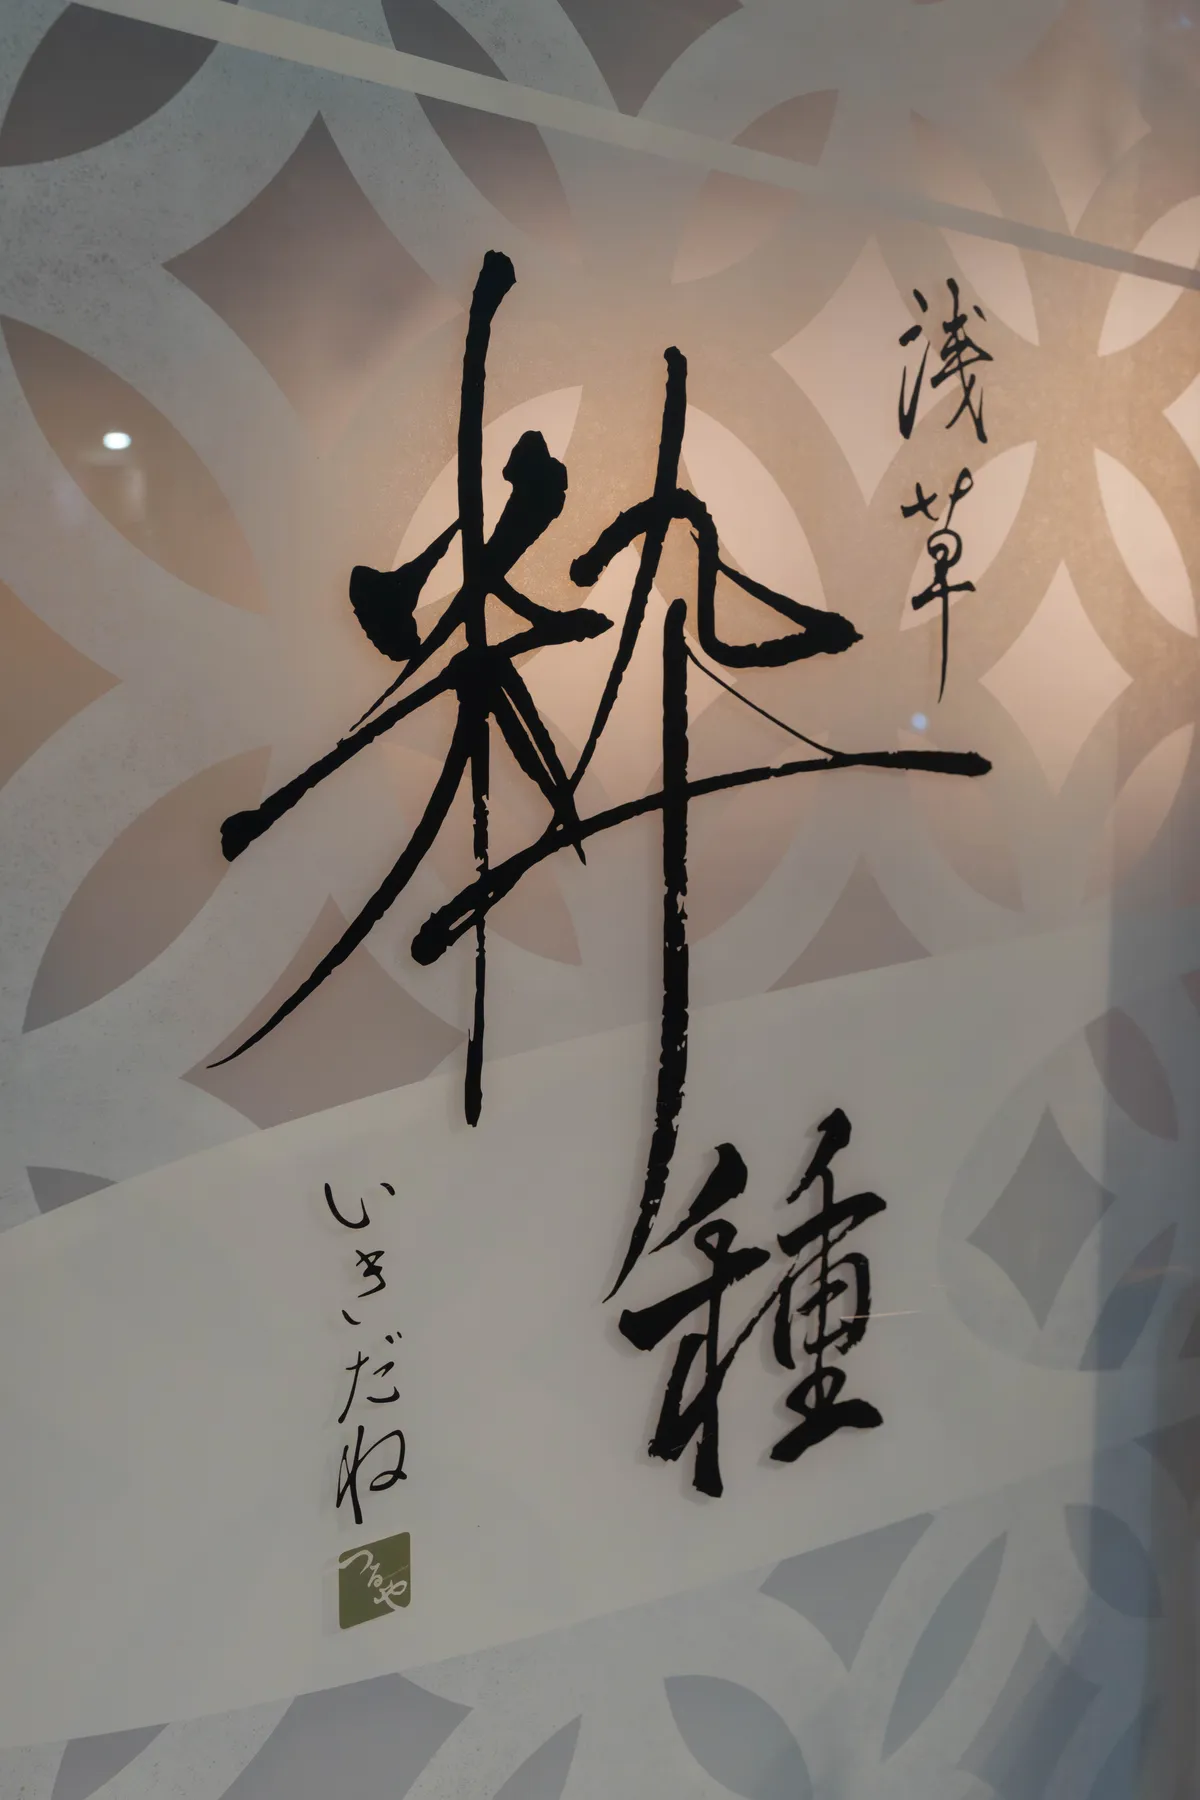 浅草
粋種
いきいだね
つるや